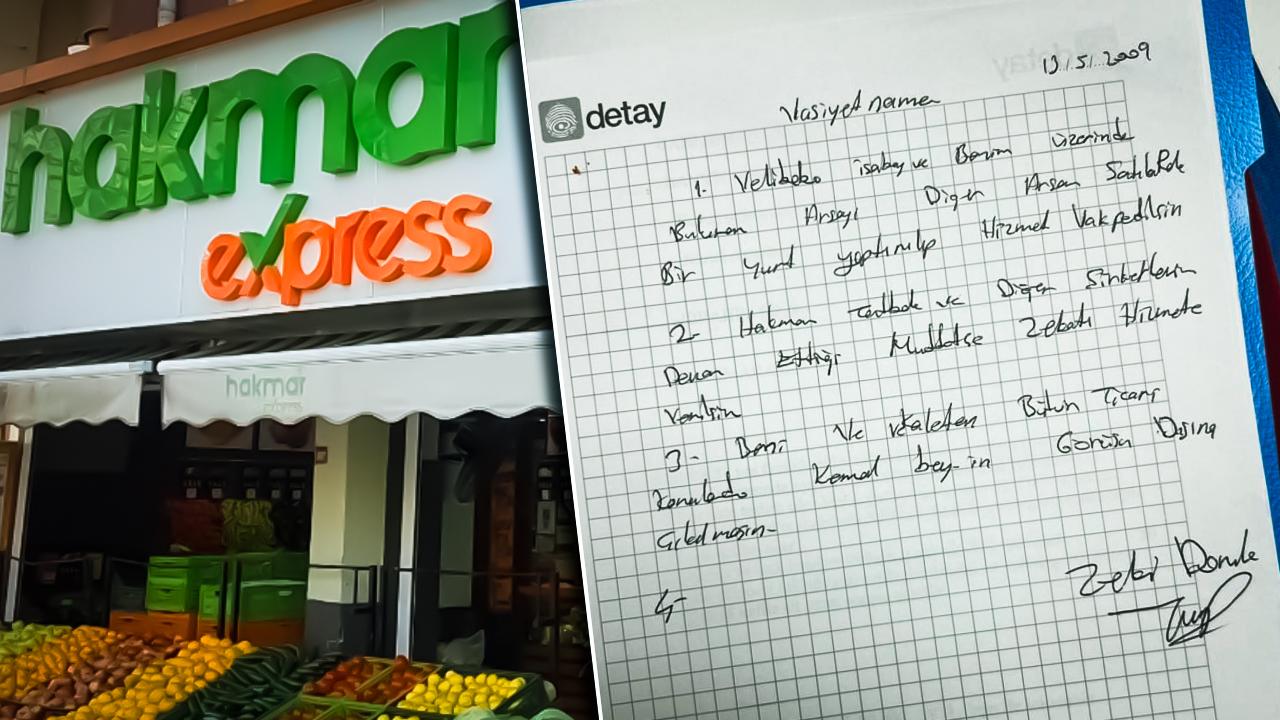 hakmar
express
hakmar
express
detay
13/5/2009
Vasiyetname
1- Velibaba isabey ve Benim üzerinde
Bulunan Arsayı Diğer Arsam Satılıp
Bir Yurt yaptırılıp Hizmet Vakfedilsin
2- Hakmar ve Diğer Şirketlerin
Devam Ettiği Müddetce Zekatı Hizmete
Verilsin
3- Beni Ve Bütün Ticari
Konularda Kemal bey-in Görüşü Dışına
Gidilmesin-
4-
Zeki Doruk